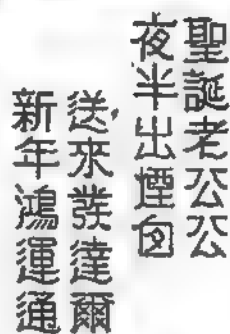 聖誕老公公
夜半出煙囪
送來發達爾
新年鴻運通